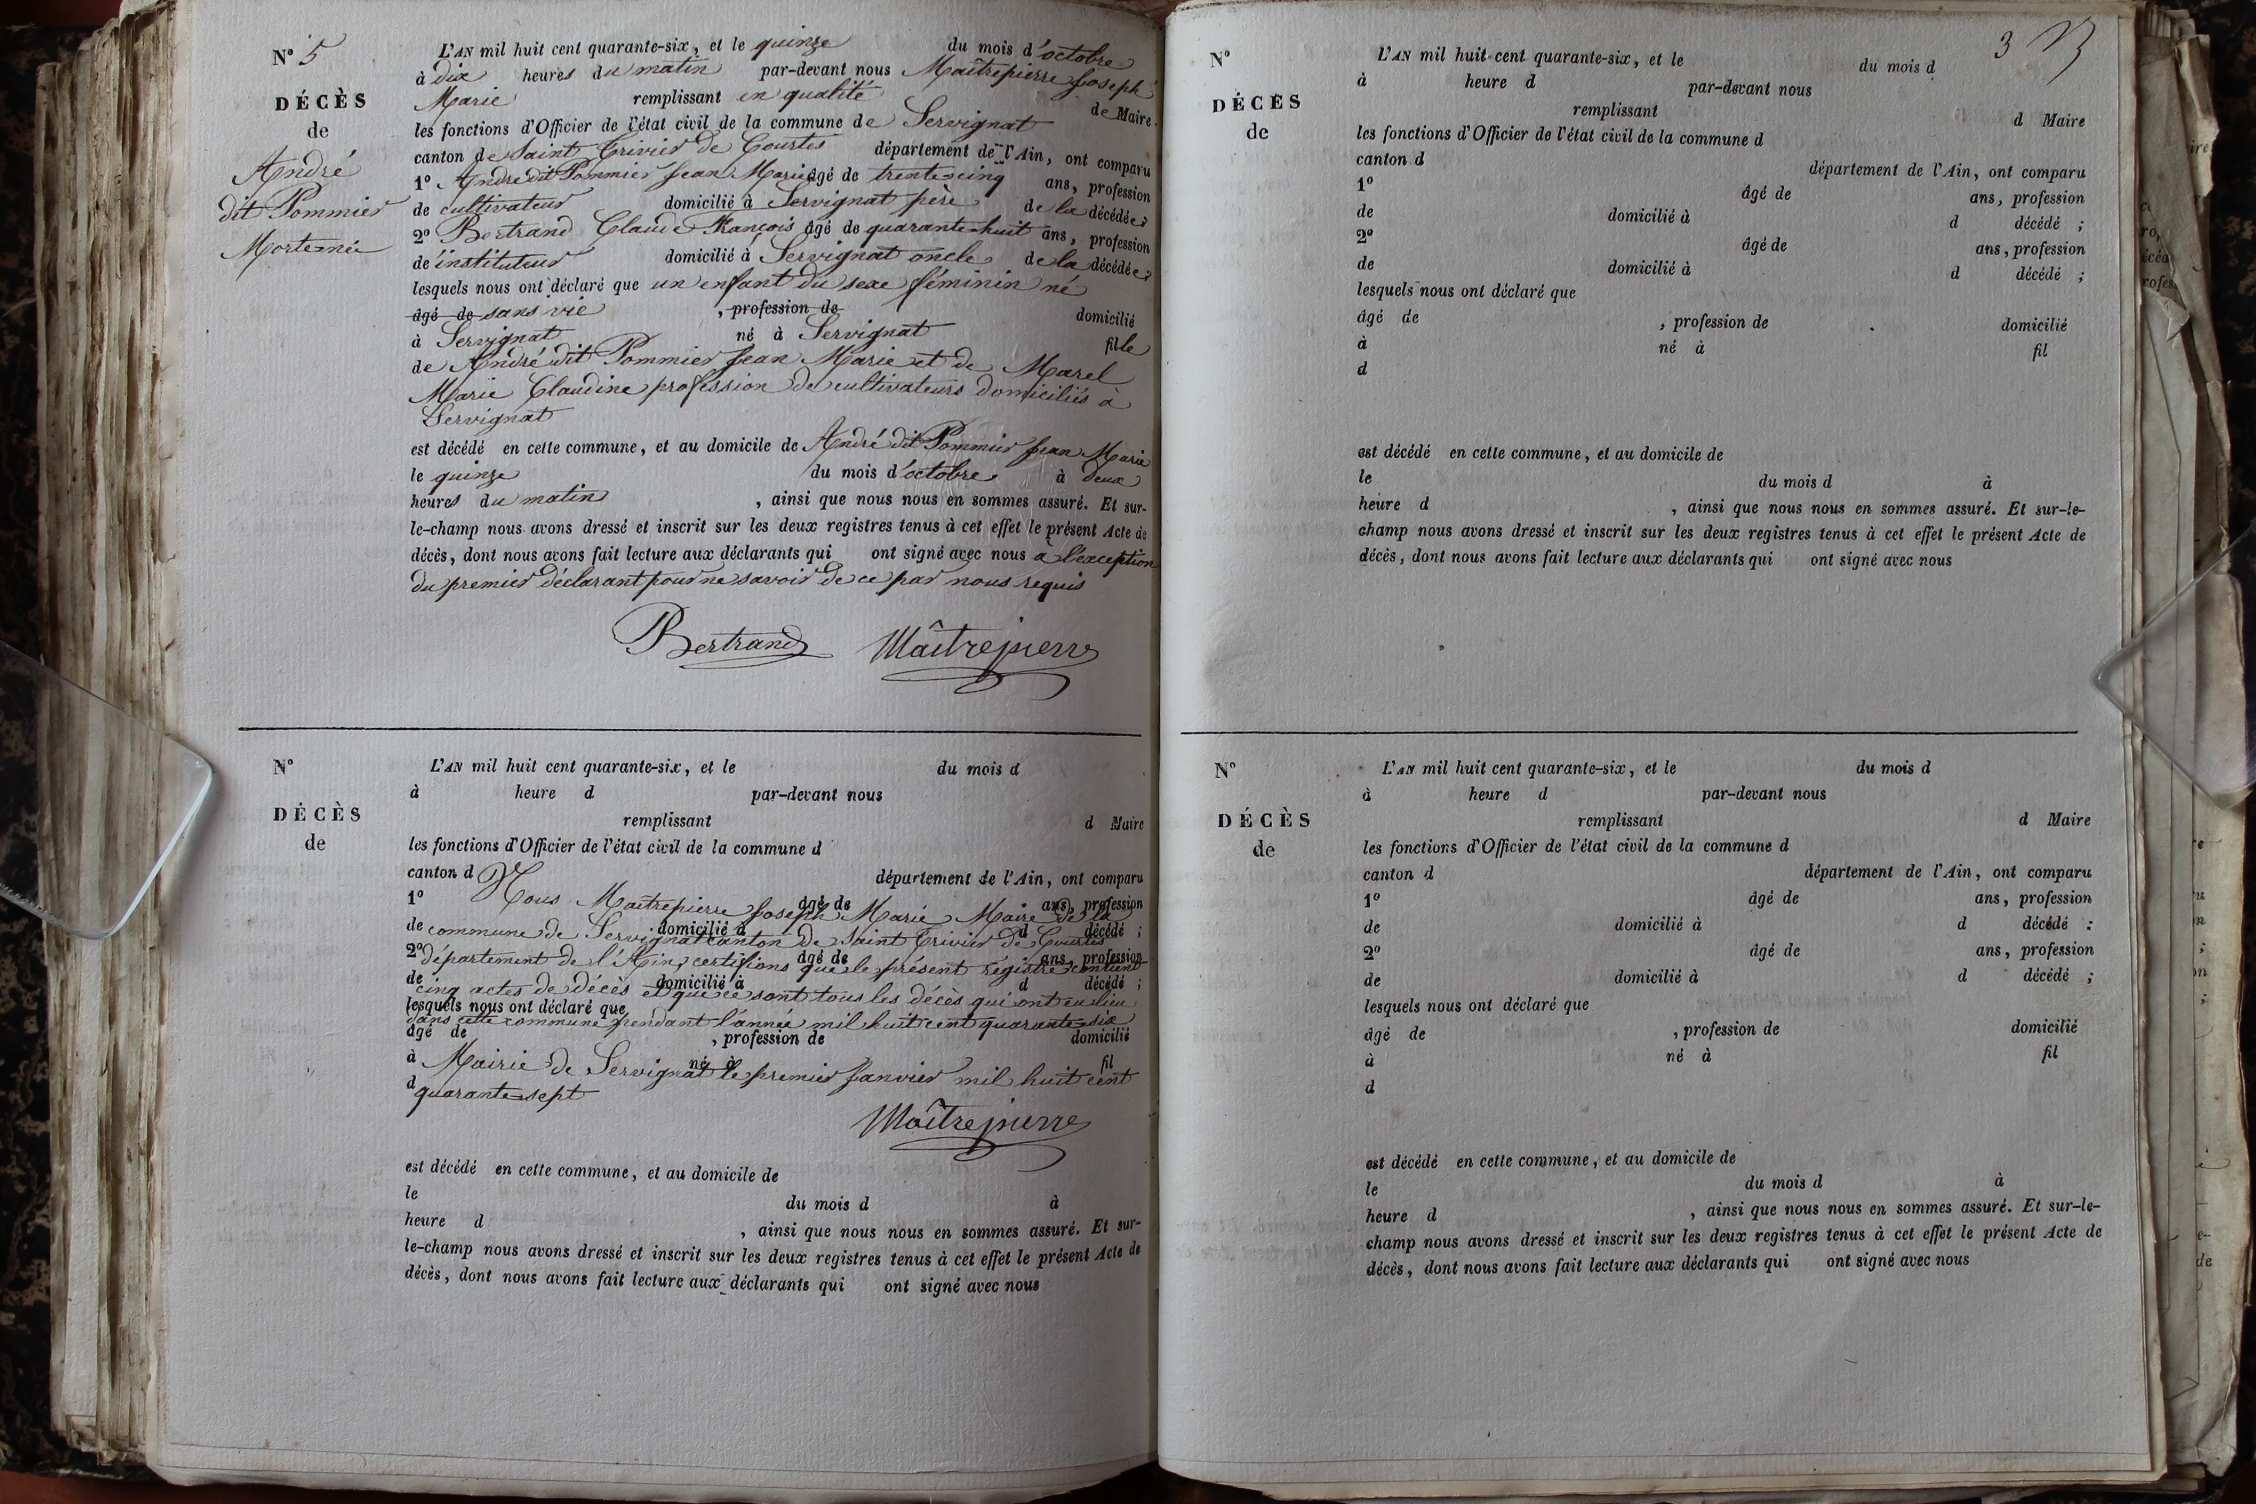 N° 5
DÉCÈS
de
André
dit Pommier
Mortenée
L'AN mil huit cent quarante-six, et le quinze du mois d'octobre
à dix heures du matin par-devant nous Maîtrepierre Joseph
Marie remplissant en qualité de Maire
les fonctions d'Officier de l'état civil de la commune de Servignat
canton de Saint Trivier de Courtes département de l'Ain, ont comparu
1° André dit Pommier Jean Marie âgé de trente-cinq ans, profession
de cultivateur domicilié à Servignat père de la décédée
2° Bertrand Claude François âgé de quarante-huit ans, profession
de instituteur domicilié à Servignat oncle de la décédée
lesquels nous ont déclaré que un enfant du sexe féminin né
âgé de sans vie , profession de domicilié
à Servignat né à Servignat fille
de André dit Pommier Jean Marie et de Marel
Marie Claudine profession de cultivateurs domiciliés à
Servignat
est décédé en cette commune, et au domicile de André dit Pommier Jean Marie
le quinze du mois d'octobre à deux
heures du matin , ainsi que nous nous en sommes assuré. Et sur-
le-champ nous avons dressé et inscrit sur les deux registres tenus à cet effet le présent Acte de
décès, dont nous avons fait lecture aux déclarants qui ont signé avec nous à l'exception
du premier déclarant pour ne savoir de ce par nous requis
Bertrand Maîtrepierre
N°
DÉCÈS
de
L'AN mil huit cent quarante-six, et le du mois d
à heure d par-devant nous
remplissant d Maire
les fonctions d'Officier de l'état civil de la commune d
canton d département de l'Ain, ont comparu
Nous Maîtrepierre Joseph Marie Maire de la
1° âgé de ans, profession
commune de Servignat canton de Saint Trivier de Courtes
de domicilié à d décédé ;
département de l'Ain, certifions que le présent régistre contient
2° âgé de ans, profession
cinq actes de décès et que ce sont tous les décès qui ont eu lieu
de domicilié à d décédé ;
lesquels nous ont déclaré que
dans cette commune pendant l'année mil huit cent quarante-six
âgé de , profession de domicilié
Mairie de Servignat le premier Janvier mil huit cent
à né à fil
d quarante-sept
Maîtrepierre
est décédé en cette commune, et au domicile de
le du mois d à
heure d , ainsi que nous nous en sommes assuré. Et sur-
le-champ nous avons dressé et inscrit sur les deux registres tenus à cet effet le présent Acte de
décès, dont nous avons fait lecture aux déclarants qui ont signé avec nous
3
N°
DÉCÈS
de
L'AN mil huit cent quarante-six, et le du mois d
à heure d par-devant nous
remplissant d Maire
les fonctions d'Officier de l'état civil de la commune d
canton d département de l'Ain, ont comparu
1° âgé de ans, profession
de domicilié à d décédé ;
2° âgé de ans, profession
de domicilié à d décédé ;
lesquels nous ont déclaré que
âgé de , profession de domicilié
à né à fil
d
est décédé en cette commune, et au domicile de
le du mois d à
heure d , ainsi que nous nous en sommes assuré. Et sur-le-
champ nous avons dressé et inscrit sur les deux registres tenus à cet effet le présent Acte de
décès, dont nous avons fait lecture aux déclarants qui ont signé avec nous
N°
DÉCÈS
de
L'AN mil huit cent quarante-six, et le du mois d
à heure d par-devant nous
remplissant d Maire
les fonctions d'Officier de l'état civil de la commune d
canton d département de l'Ain, ont comparu
1° âgé de ans, profession
de domicilié à d décédé :
2° âgé de ans, profession
de domicilié à d décédé ;
lesquels nous ont déclaré que
âgé de , profession de domicilié
à né à fil
d
est décédé en cette commune, et au domicile de
le du mois d à
heure d , ainsi que nous nous en sommes assuré. Et sur-le-
champ nous avons dressé et inscrit sur les deux registres tenus à cet effet le présent Acte de
décès, dont nous avons fait lecture aux déclarants qui ont signé avec nous